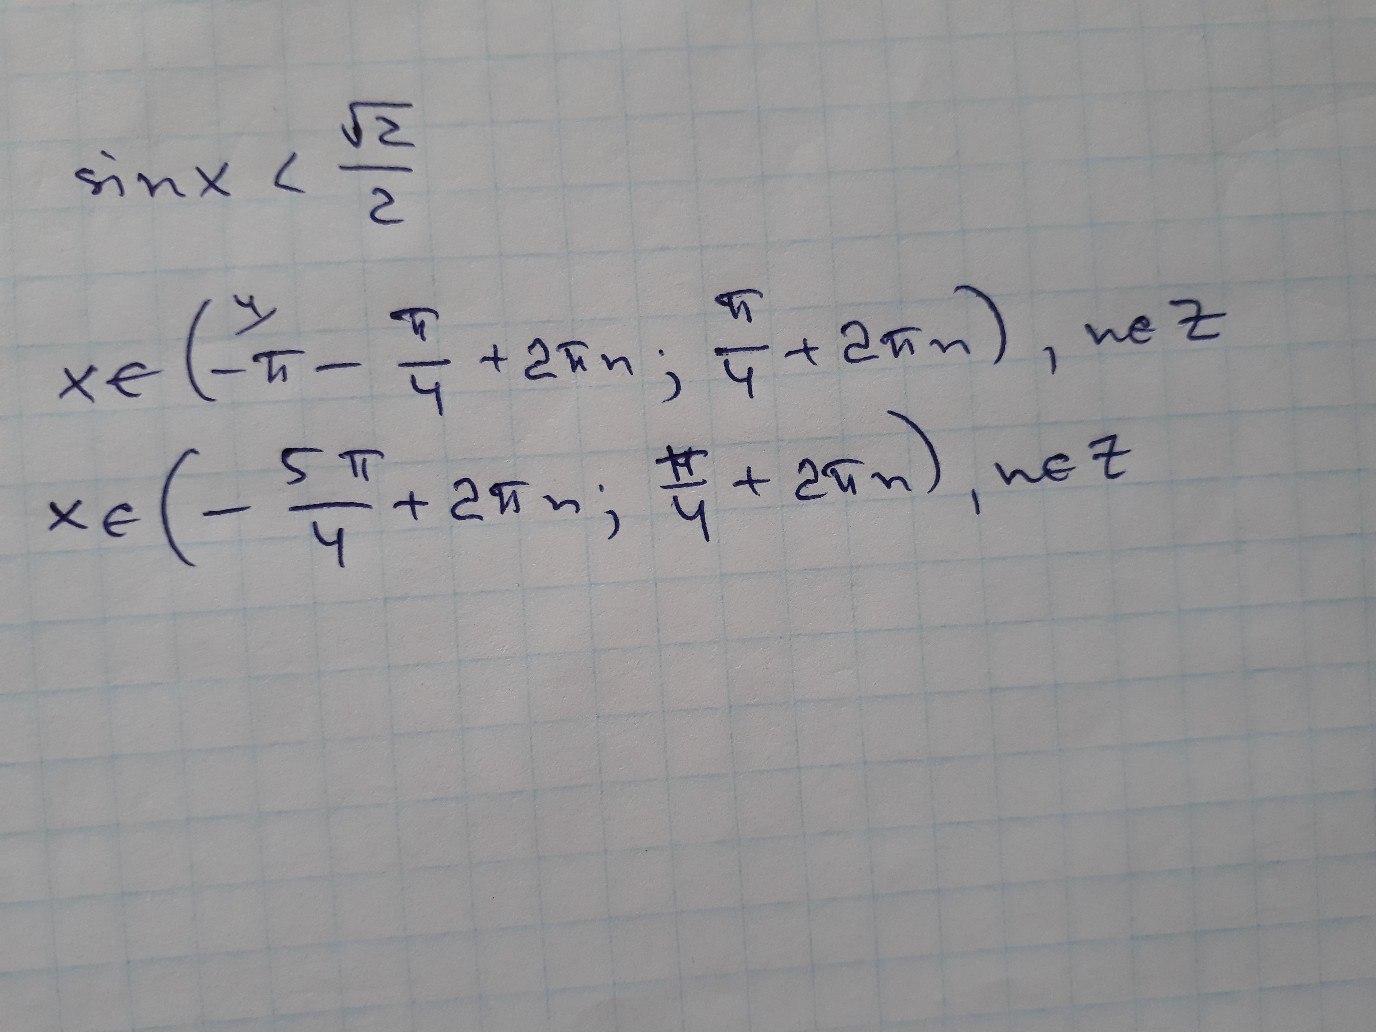 sinx < √2/2
x∈(-π - π/4 + 2πn; π/4 + 2πn), n∈Z
x∈(- 5π/4 + 2πn; π/4 + 2πn), n∈Z